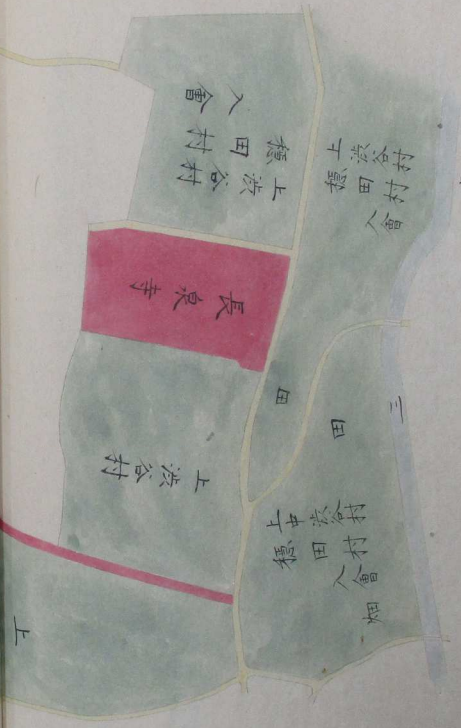 上渋谷村
穏田村
入會
上渋谷村
穏田村
入會
長泉寺
田
田
三
上渋谷村
上中渋谷村
穏田村
入會
畑
上